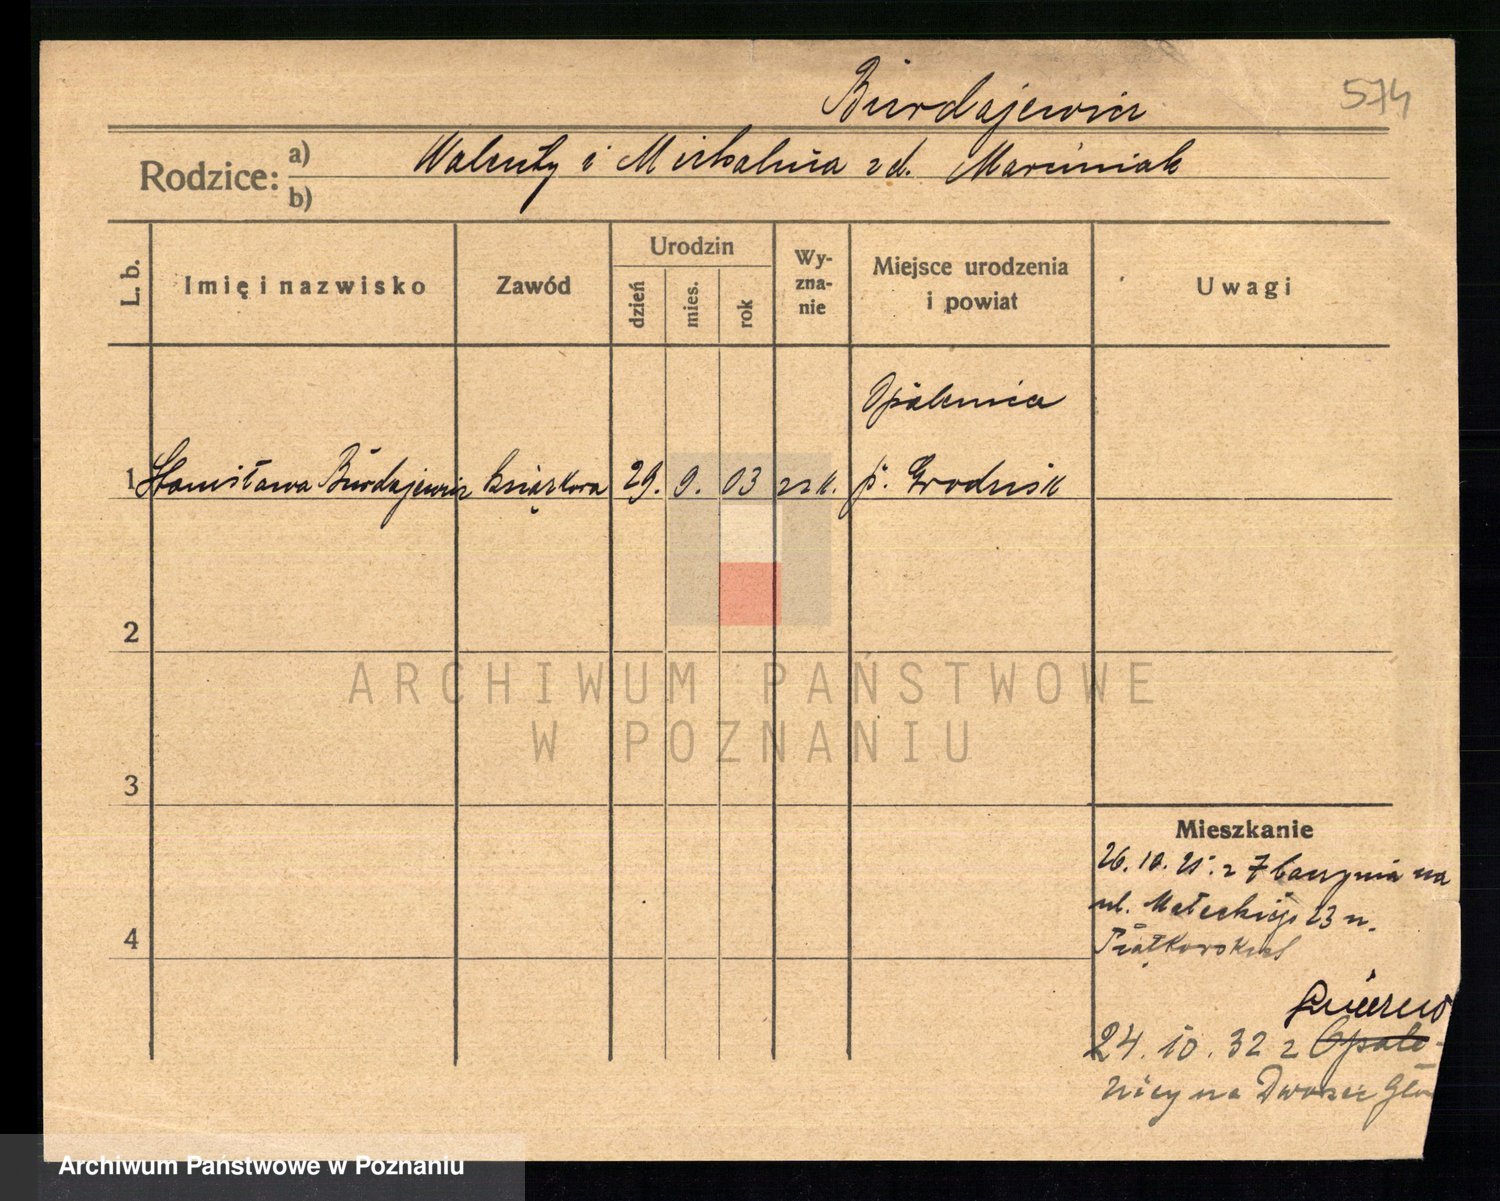 574
Burdajewicz
Rodzice: a) Walenty i Michalina zd. Marciniak
b)
L. b.
Imię i nazwisko
Zawód
Urodzin
dzień
mies.
rok
Wy-
zna-
nie
Miejsce urodzenia
i powiat
Uwagi
Opalenica
1 Stanisława Burdajewicz książkowa 29. 9. 03 rzk. p. Grodzisk
2
3
4
Mieszkanie
26. 10. 25. z na
ul. Małeckiego 23 u.
24. 10. 32 z Opale-
nicy na Dworzec Głów
ARCHIWUM PAŃSTWOWE
W POZNANIU
Archiwum Państwowe w Poznaniu